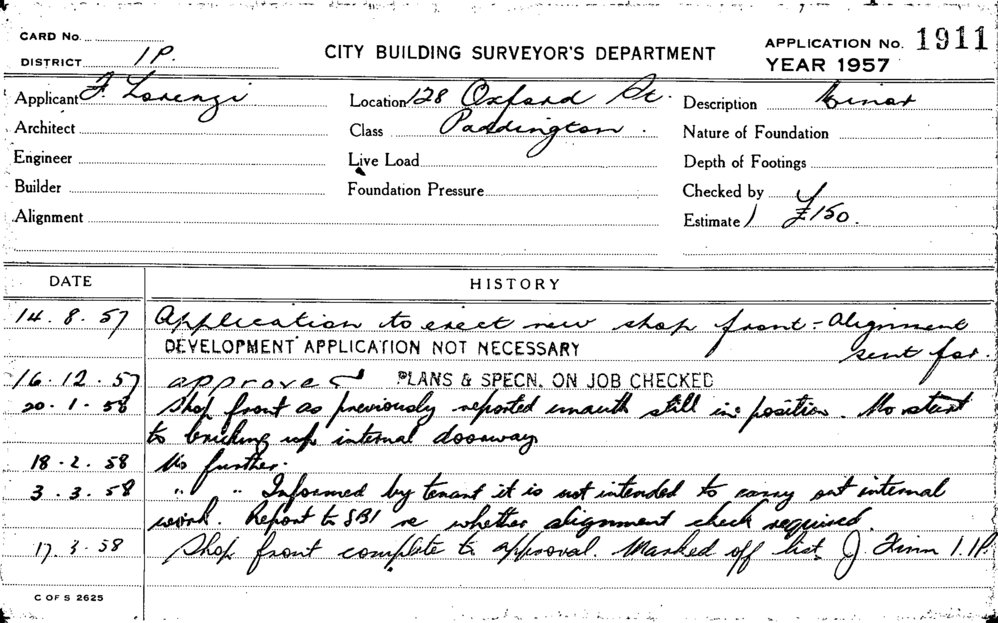 CARD No.
DISTRICT 1P.
CITY BUILDING SURVEYOR'S DEPARTMENT
APPLICATION No. 1911
YEAR 1957
Applicant F. Lorenzi
Location 128 Oxford St.
Description Minor
Architect
Class Paddington.
Nature of Foundation
Engineer
Live Load
Depth of Footings
Builder
Foundation Pressure
Checked by
Alignment
Estimate £150.
DATE
HISTORY
14. 8. 57 Application to erect new shop front - Alignment
sent for.
DEVELOPMENT APPLICATION NOT NECESSARY
16. 12. 57 approved PLANS & SPECN. ON JOB CHECKED
20. 1. 58 Shop front as previously reported unauth still in position. No start
to bricking up internal doorway
18. 2. 58 No further.
3. 3. 58 " " Informed by tenant it is not intended to carry out internal
work. Report to SBI re whether alignment check required.
17. 3. 58 Shop front complete to approval. Marked off list. J Finn 1.1P.
C OF S 2625